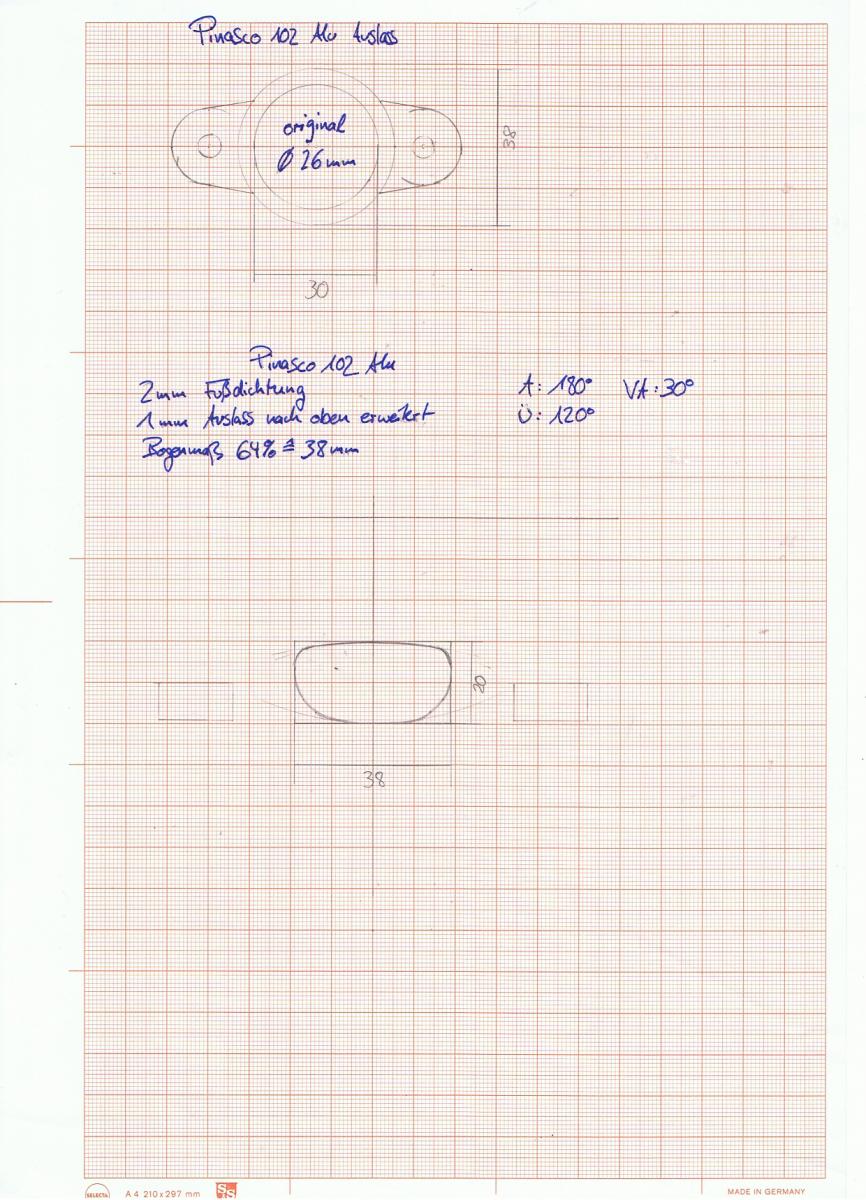 Pinasco 102 Alu Auslass
original
Ø 26mm
38
30
Pinasco 102 Alu
2mm Fußdichtung
1mm Auslass nach oben erweitert
Bogenmaß 64% ≙ 38mm
A: 180° VA: 30°
Ü: 120°
20
38
SELECTA A 4 210 x 297 mm SS MADE IN GERMANY